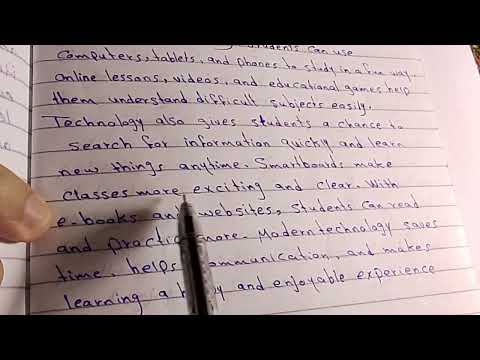 Students can use
Computers, tablets, and phones to study in a fun way.
online lessons, videos, and educational games help
them understand difficult subjects easily.
Technology also gives students a chance to
search for information quickly and learn
new things anytime. Smartboards make
classes more exciting and clear. With
e-books and websites, students can read
and practice more. Modern technology saves
time, helps communication, and makes
learning a happy and enjoyable experience